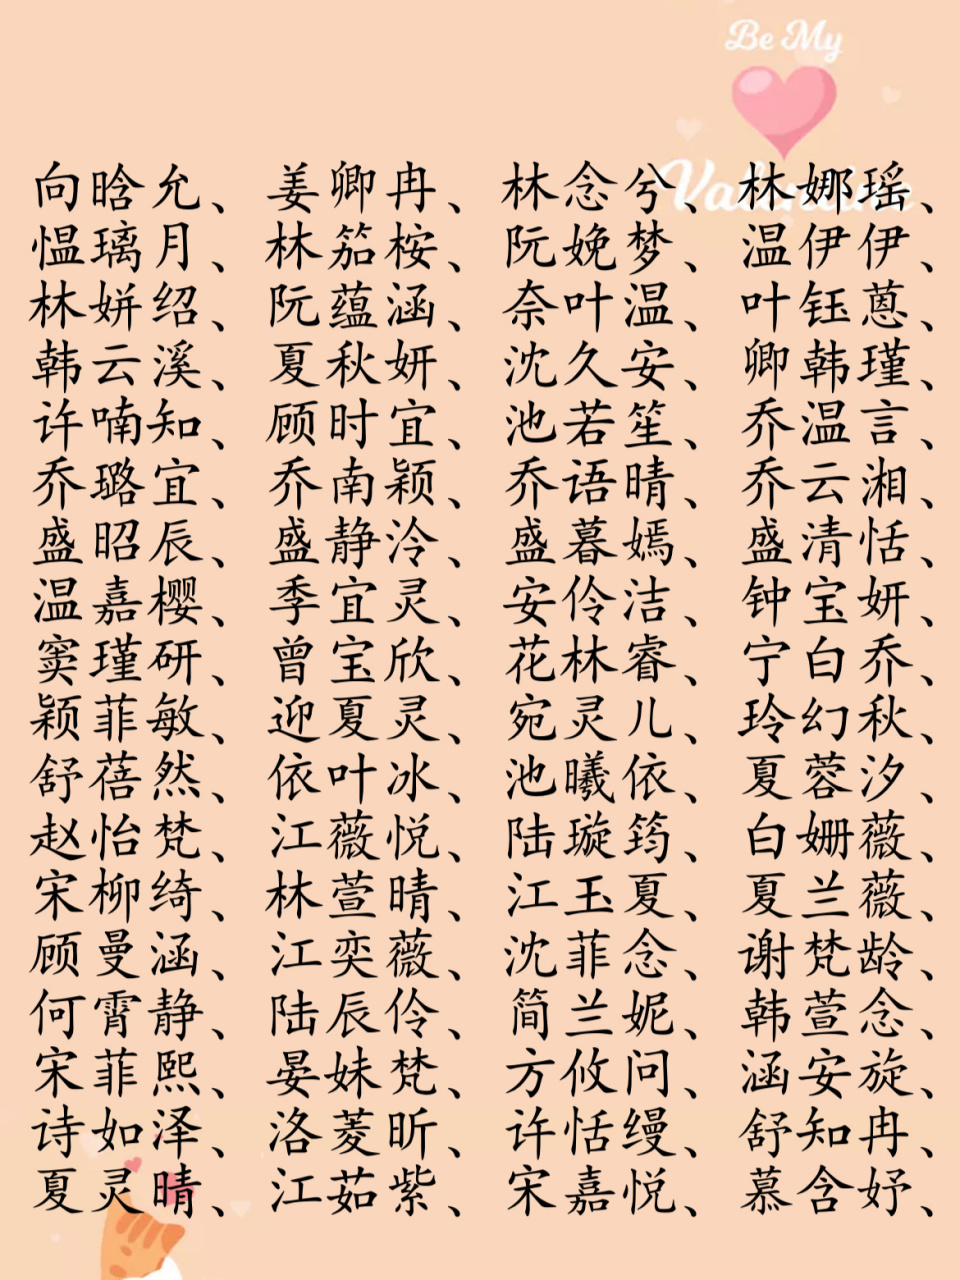 Be My
Valentine
向晗允、姜卿冉、林念兮、林娜瑶、
愠璃月、林笳桉、阮娩梦、温伊伊、
林姘绍、阮蕴涵、奈叶温、叶钰蒽、
韩云溪、夏秋妍、沈久安、卿韩瑾、
许喃知、顾时宜、池若笙、乔温言、
乔璐宜、乔南颖、乔语晴、乔云湘、
盛昭辰、盛静泠、盛暮嫣、盛清恬、
温嘉樱、季宜灵、安伶洁、钟宝妍、
窦瑾研、曾宝欣、花林睿、宁白乔、
颖菲敏、迎夏灵、宛灵儿、玲幻秋、
舒蓓然、依叶冰、池曦依、夏蓉汐、
赵怡梵、江薇悦、陆璇筠、白姗薇、
宋柳绮、林萱晴、江玉夏、夏兰薇、
顾曼涵、江奕薇、沈菲念、谢梵龄、
何霄静、陆辰伶、简兰妮、韩萱念、
宋菲熙、晏妹梵、方攸问、涵安旋、
诗如泽、洛菱昕、许恬缦、舒知冉、
夏灵晴、江茹紫、宋嘉悦、慕含妤、